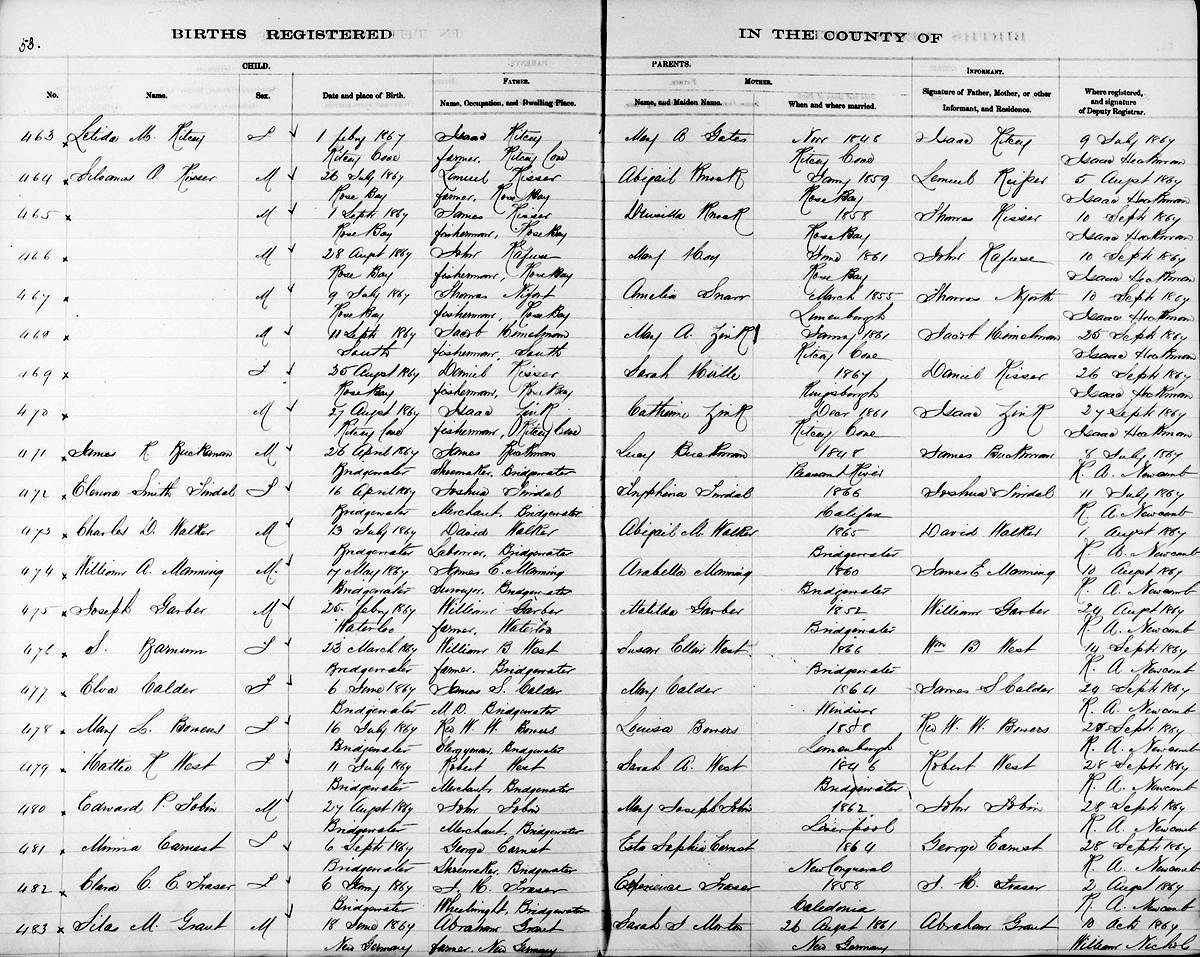 58.
BIRTHS REGISTERED IN THE COUNTY OF
CHILD. PARENTS.
FATHER. MOTHER. INFORMANT.
No. Name. Sex. Date and place of Birth. Name, Occupation, and Dwelling Place. Name, and Maiden Name. When and where married. Signature of Father, Mother, or other Informant, and Residence. Where registered, and signature of Deputy Registrar.
463 Letida M. Ritcey F 1 feby 1867 Isaac Ritcey Mary A Gates Novr 1848 Isaac Ritcey 9 July 1867
Ritcey Cove farmer. Ritcey Cove Ritcey Cove Isaac Heckman
464 O. Risser M 26 July 1867 Lemuel Risser Abigail Jany 1859 Lemuel 5 August 1867
Rose Bay farmer, Rose Bay Rose Bay Isaac Heckman
465 M 1 Septr 1867 James Risser 1858 Thomas Risser 10 Septr 1867
Rose Bay fisherman, Rose Bay Rose Bay Isaac Heckman
466 M 28 August 1867 John Rafuse Mary June 1861 John Rafuse 10 Septr 1867
Rose Bay fisherman, Rose Bay Rose Bay Isaac Heckman
467 M 9 July 1867 Thomas Amelia March 1855 Thomas 10 Septr 1867
Rose Bay fisherman, Rose Bay Lunenburgh Isaac Heckman
468 M 11 Septr 1867 Jacob Himelman Mary A. Zink Jany 1861 Jacob Himelman 25 Septr 1867
South fisherman, South Ritcey Cove Isaac Heckman
469 F 25 August 1867 Daniel Risser Sarah 1867 Daniel Risser 26 Septr 1867
Rose Bay fisherman, Rose Bay Kingsburgh Isaac Heckman
470 M 27 August 1867 Isaac Zink Catherine Zink Decr 1861 Isaac Zink 27 Septr 1867
Ritcey Cove fisherman, Ritcey Cove Ritcey Cove Isaac Heckman
471 James R Buckman M 26 April 1867 James Buckman Lucy Buckman 1848 James Buckman 8 July 1867
Bridgewater Shoemaker, Bridgewater Pleasant River R. A. Newcomb
472 Smith F 16 April 1867 Joshua 1866 Joshua 11 July 1867
Bridgewater Merchant, Bridgewater Halifax R. A. Newcomb
473 Charles D. Walker M 13 July 1867 David Walker Abigail M. Walker 1865 David Walker August 1867
Bridgewater Laborer, Bridgewater Bridgewater R. A. Newcomb
474 William A. Manning M 17 May 1867 James E. Manning Arabella Manning 1860 James E Manning 10 August 1867
Bridgewater Surveyor, Bridgewater Bridgewater R. A. Newcomb
475 Joseph Garber M 25 feby 1867 William Garber Matilda Garber 1852 William Garber 24 August 1867
Waterloo farmer, Waterloo Bridgewater R. A. Newcomb
476 S. Barnum F 23 March 1867 William B West Susan Ellen West 1866 Wm B West 14 Septr 1867
Bridgewater farmer. Bridgewater Bridgewater R. A. Newcomb
477 Elva Calder F 6 June 1867 James S. Calder Mary Calder 1864 James S Calder 24 Septr 1867
Bridgewater M.D. Bridgewater Windsor R. A. Newcomb
478 Mary L. Bowers F 16 July 1867 Rev W. W. Bowers Louisa Bowers 1858 Rev W. W. Bowers Septr 1867
Bridgewater Clergyman, Bridgewater Lunenburgh R. A. Newcomb
479 Hattie R West F 11 July 1867 Robert West Sarah A. West 1846 Robert West 28 Septr 1867
Bridgewater Merchant, Bridgewater Bridgewater R. A. Newcomb
480 Edward P. Tobin M 27 August 1867 John Tobin Mary Joseph Tobin 1862 John Tobin 28 Septr 1867
Bridgewater Merchant, Bridgewater Liverpool R. A. Newcomb
481 Minna Earnest F 6 Septr 1867 George Earnst Sophia Earnst 1864 George Earnst 28 Septr 1867
Bridgewater Shoemaker, Bridgewater R. A. Newcomb
482 Clara C. E. Fraser F 6 Jany 1867 J. H. Fraser Experience Fraser 1858 J. H. Fraser 2 August 1867
Bridgewater Wheelwright, Bridgewater Caledonia R. A. Newcomb
483 Silas M. Grant M 18 June 1867 Abraham Grant Sarah J Morton 26 August 1861 Abraham Grant 10 Octr 1867
New Germany farmer. New Germany New Germany William Nichol